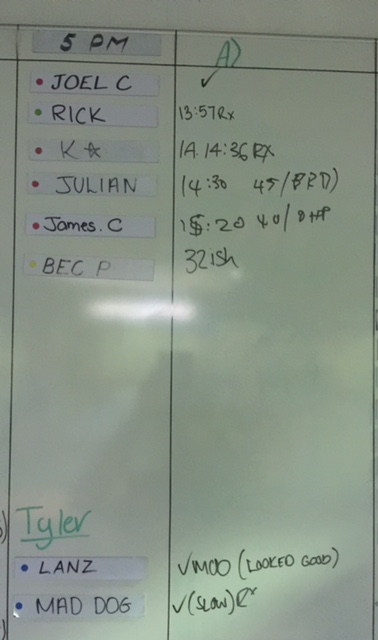 5 PM A)
JOEL C ✓
RICK 13:57 Rx
K☆ 14:36 RX
JULIAN 14:30 45/
James. C 15:20 40/
BEC P 32ish
Tyler
LANZ ✓ MOD (LOOKED GOOD)
MAD DOG ✓ (SLOW) Rx